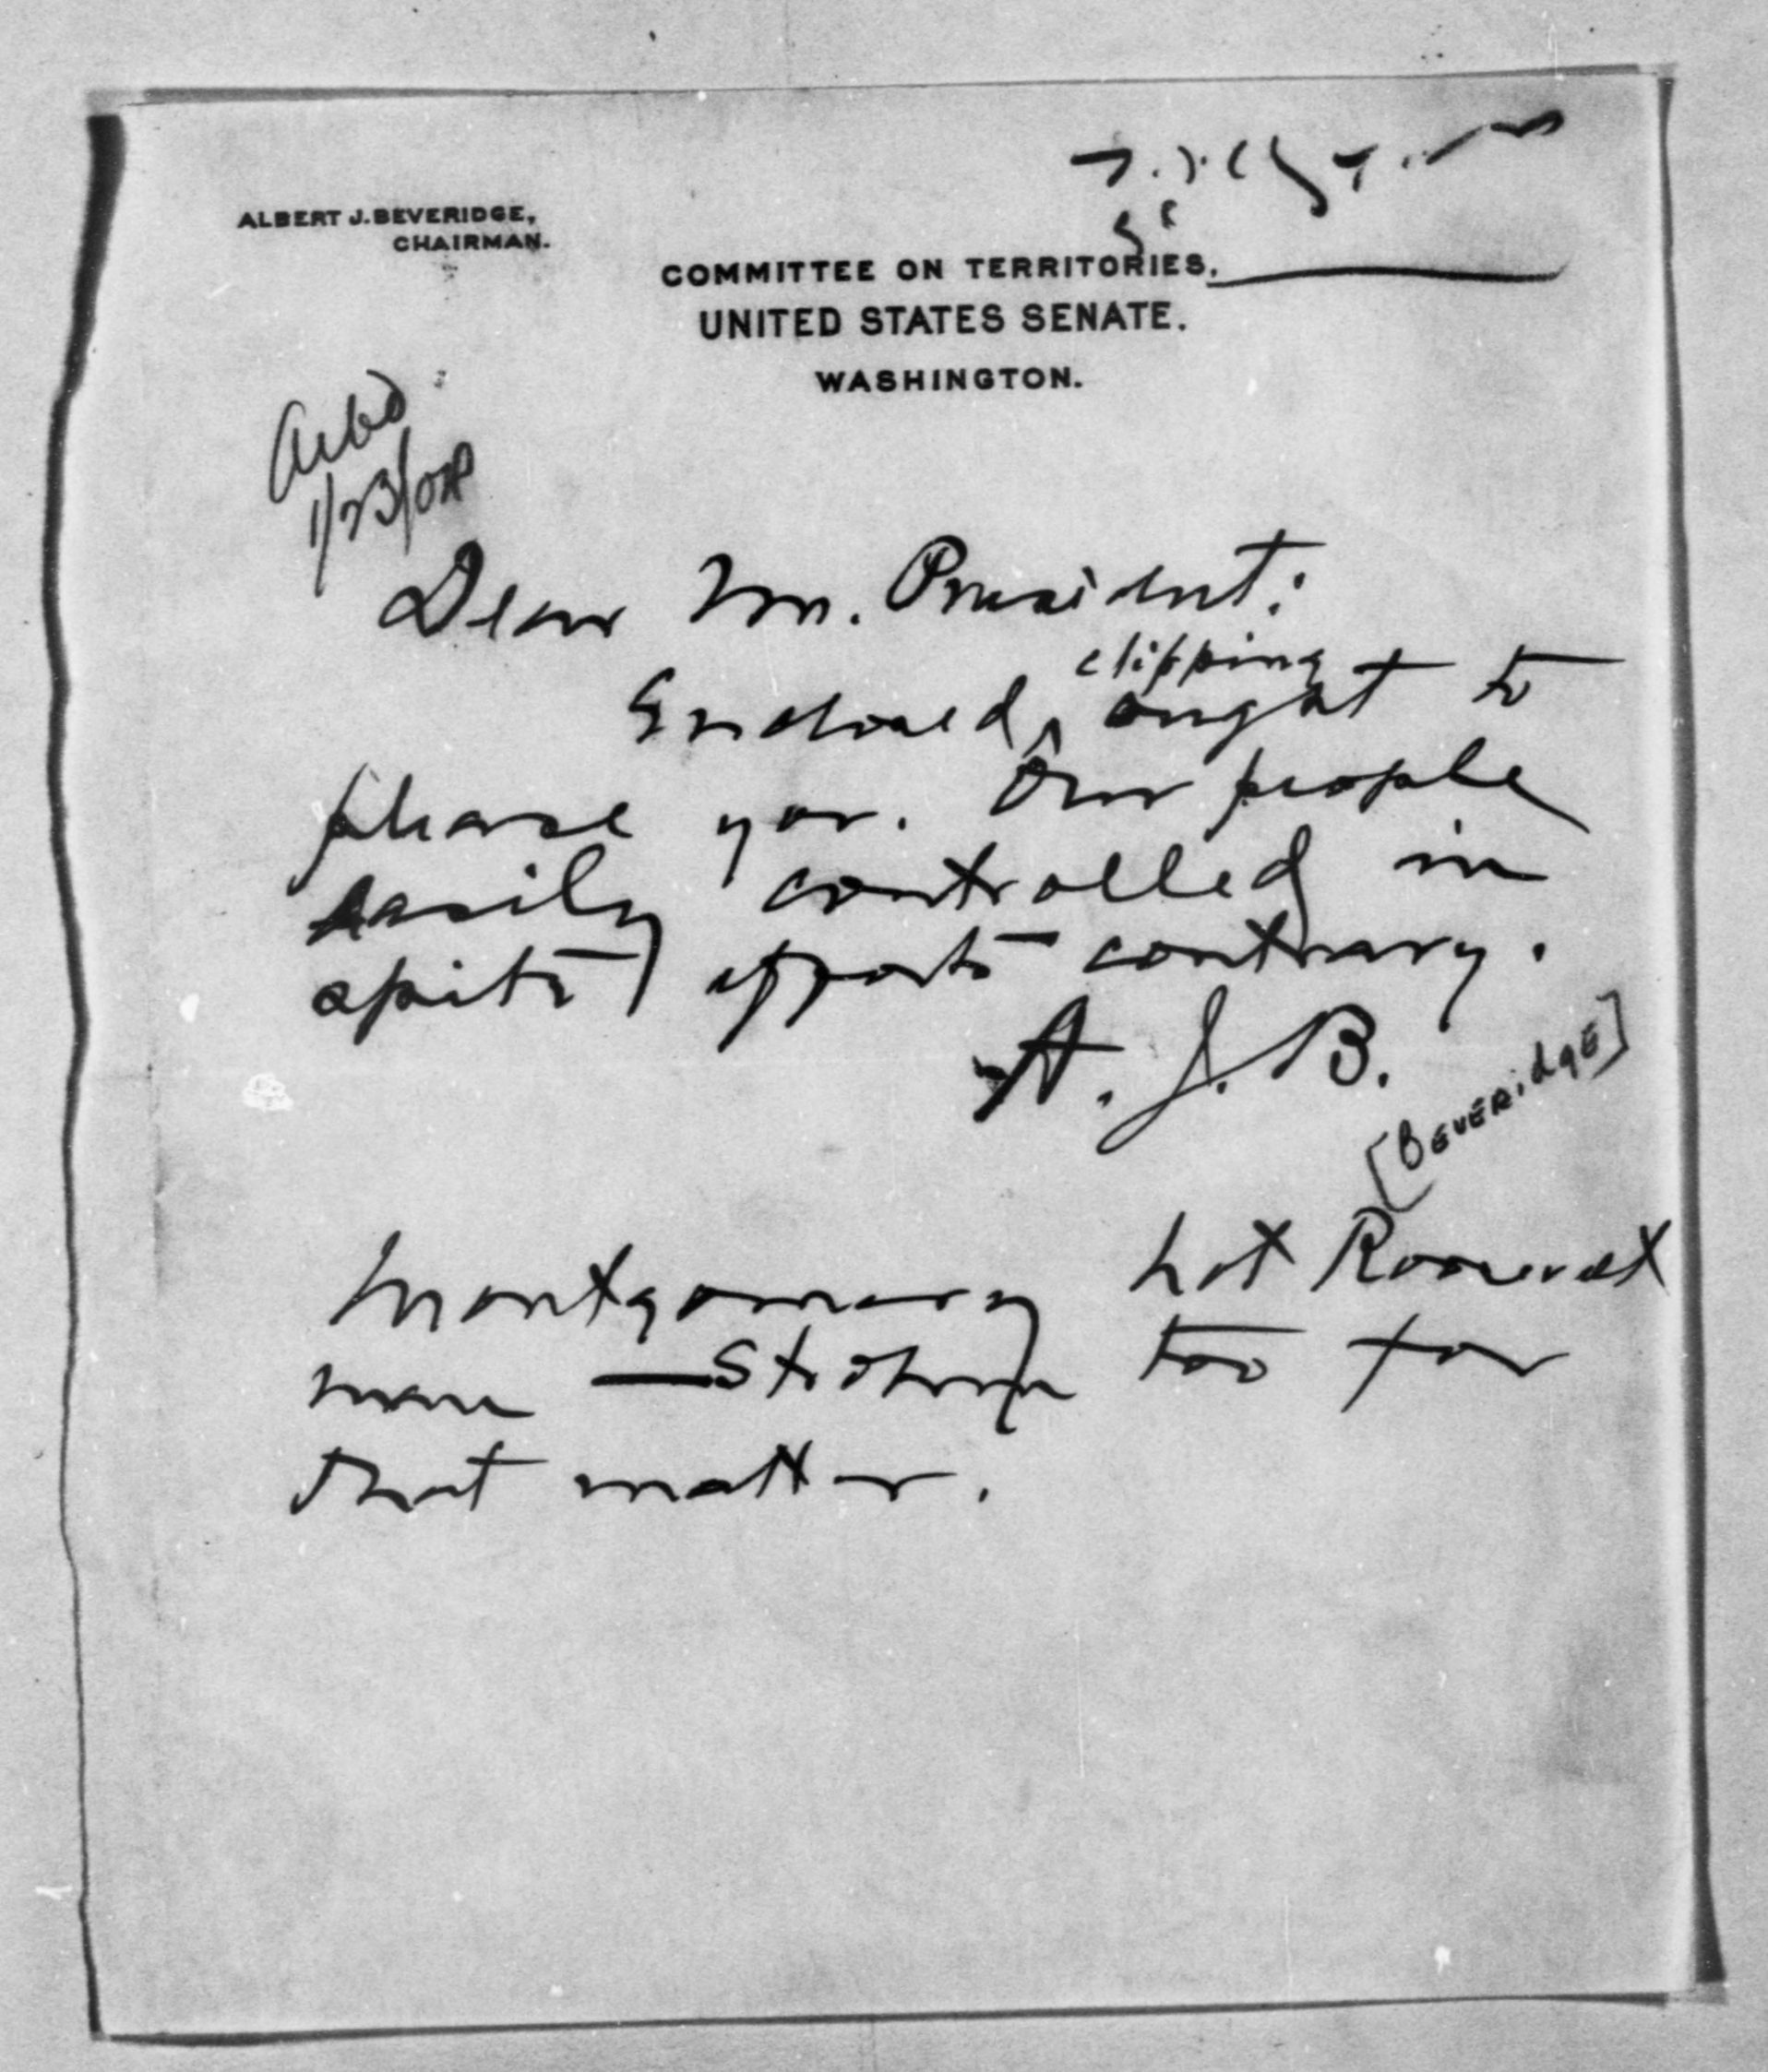 ALBERT J. BEVERIDGE,
CHAIRMAN.
COMMITTEE ON TERRITORIES,
UNITED STATES SENATE.
WASHINGTON.
1/23/08
Dear Mr. President:
clipping
Enclosed ^ ought to
please you. Our people
easily controlled in
spite efforts contrary.
A. J. B.
[BEVERidgE]
Montgomery hot Roosevelt
man — too for
that matter.